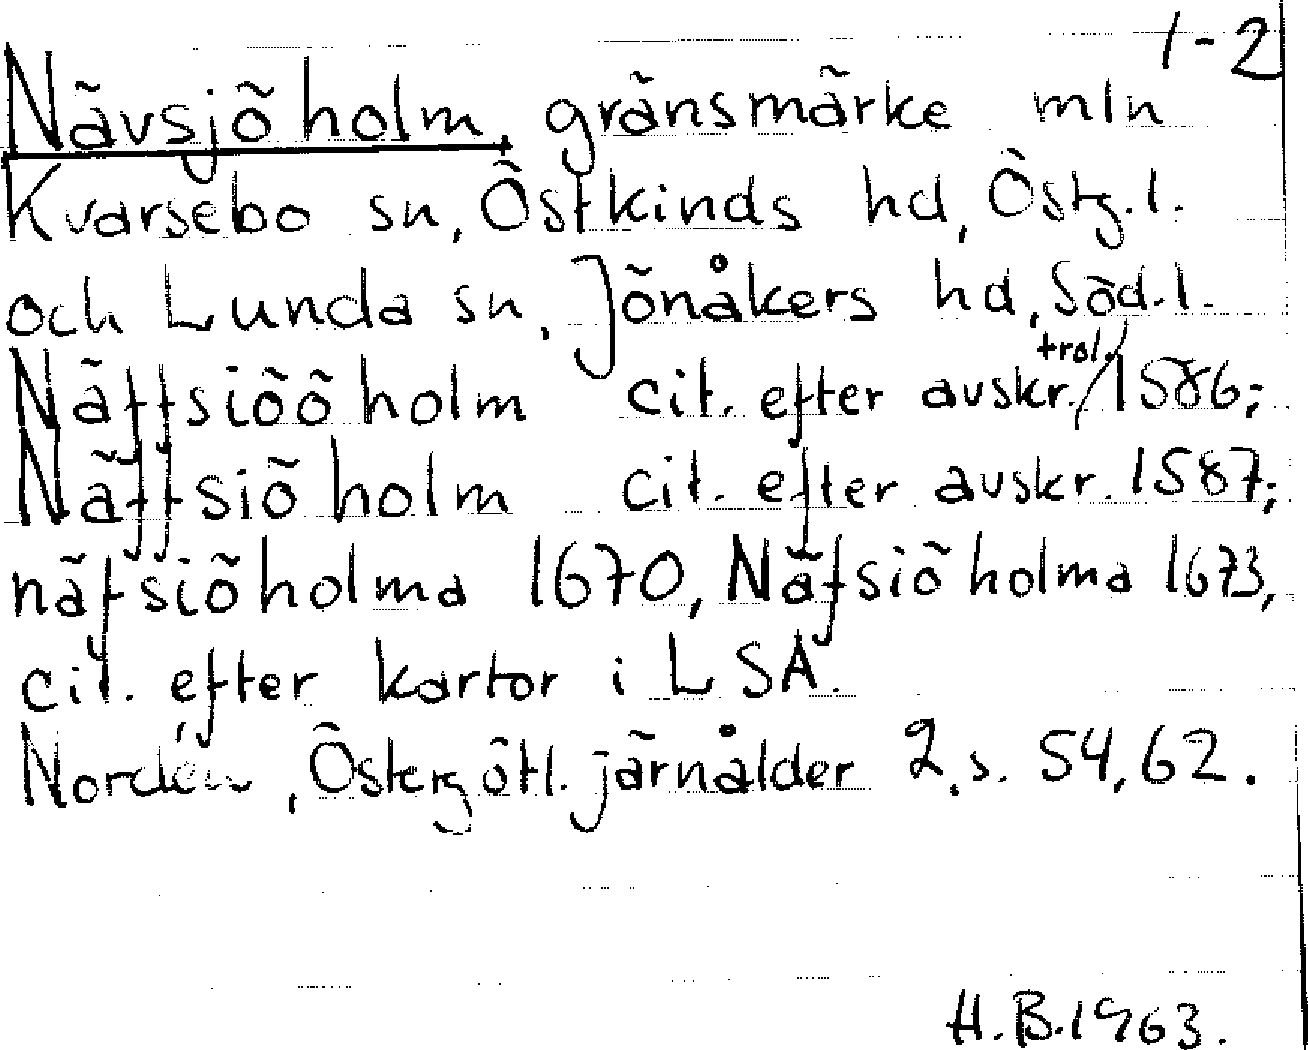 1-2
Nävsjöholm, gränsmärke mln
Kvarsebo sn, Östkinds hd, Östg.l.
och Lunda sn, Jönåkers hd, Söd.l.
Näffsiöö holm cit. efter avskr. trol. 1586;
Näffsiö holm cit. efter avskr. 1587;
näfsiöholma 1670, Näfsiö holma 1673,
cit. efter kartor i LSA.
Nordén, Östergötl. järnålder 2, s. 54, 62.
H.B. 1963.